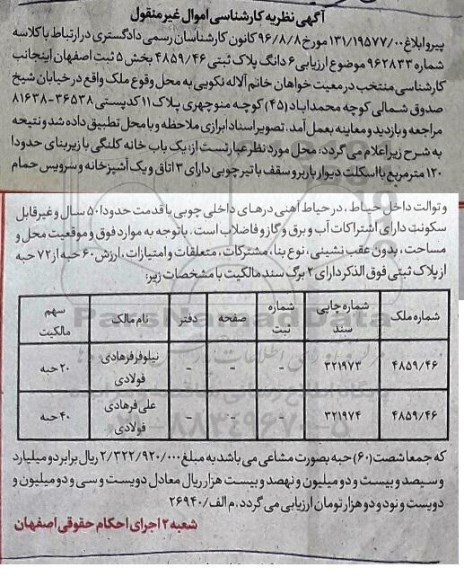 آگهی نظریه کارشناسی اموال غیر منقول
پیرو ابلاغ ۱۳۱/۱۹۵۷۷/۰۰ مورخ ۹۶/۸/۸ کانون کارشناسان رسمی دادگستری در ارتباط با کلاسه
شماره ۹۶۲۸۳۳ موضوع ارزیابی ۶ دانگ پلاک ثبتی ۴۸۵۹/۴۶ بخش ۵ ثبت اصفهان اینجانب
کارشناسی منتخب در معیت خواهان خانم آلاله نکویی به محل وقوع ملک واقع در خیابان شیخ
صدوق شمالی کوچه محمداباد (۴۵) کوچه منوچهری پلاک ۱۱ کدپستی ۳۶۵۳۸-۸۱۶۳۸
مراجعه و بازدید و معاینه بعمل آمد. تصویر اسناد ابرازی ملاحظه و با محل تطبیق داده شد و نتیجه
به شرح زیر اعلام می گردد: محل مورد نظر عبارتست از: یک باب خانه کلنگی با زیربنای حدودا
۱۲۰ مترمربع با اسکلت دیوار باربر و سقف با تیر چوبی دارای ۳ اتاق و یک آشپزخانه و سرویس حمام
و توالت داخل حیاط، درحیاط آهنی درهای داخلی چوبی با قدمت حدودا ۵۰ سال و غیر قابل
سکونت دارای اشتراکات آب و برق و گاز و فاضلاب است. باتوجه به موارد فوق و موقعیت محل و
مساحت، بدون عقب نشینی، نوع بنا، مشترکات، متعلقات و امتیازات، ارزش ۶۰ حبه از ۷۲ حبه
از پلاک ثبتی فوق الذکر دارای ۲ برگ سند مالکیت با مشخصات زیر:
شماره ملک | شماره چاپی سند | شماره ثبت | صفحه | دفتر | نام مالک | سهم مالکیت
۴۸۵۹/۴۶ | ۳۲۱۹۷۳ | - | - | - | نیلوفر فرهادی فولادی | ۲۰ حبه
۴۸۵۹/۴۶ | ۳۲۱۹۷۴ | - | - | - | علی فرهادی فولادی | ۴۰ حبه
که جمعا شصت (۶۰) حبه بصورت مشاعی می باشد به مبلغ ۲/۳۲۲/۹۲۰/۰۰۰ ریال برابر دو میلیارد
و سیصد و بیست و دو میلیون و نهصد و بیست هزار ریال معادل دویست و سی و دو میلیون و
دویست و نود و دو هزار تومان ارزیابی می گردد. م الف/۲۶۹۴۰
شعبه ۲ اجرای احکام حقوقی اصفهان